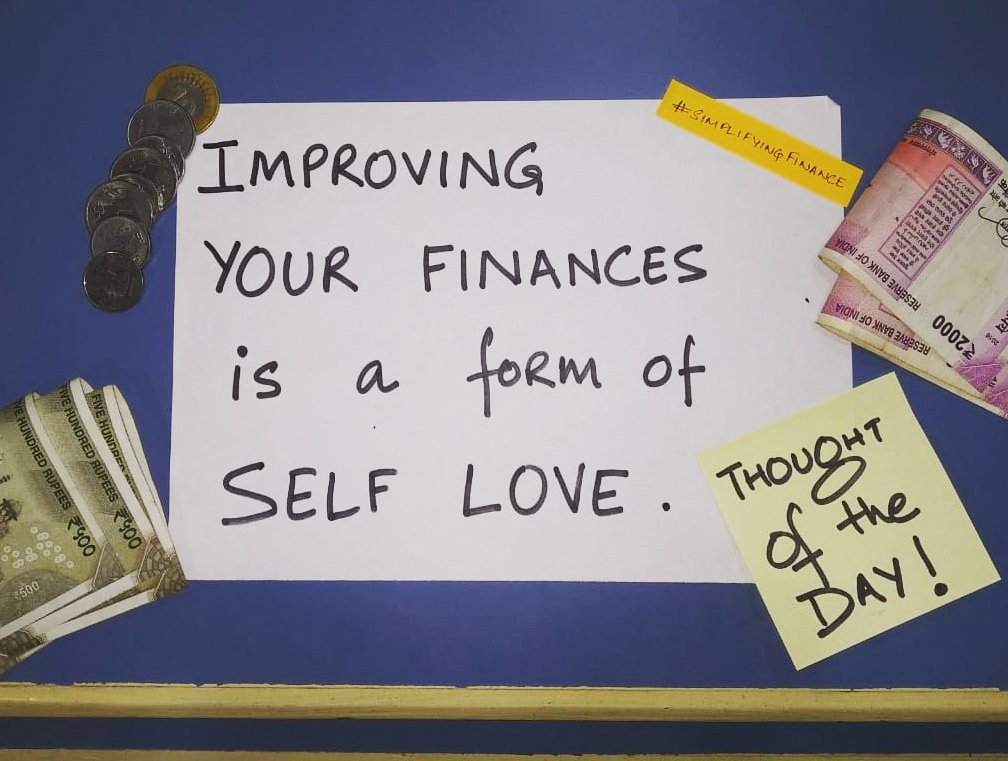 IMPROVING
YOUR FINANCES
is a form of
SELF LOVE.
#SIMPLIFYINGFINANCE
THOUGHT
of the
DAY!
RESERVE BANK OF INDIA
RESERVE BANK OF INDIA
₹2000
FIVE HUNDRED RUPEES
FIVE HUNDRED RUPEES
FIVE HUNDRED
₹500